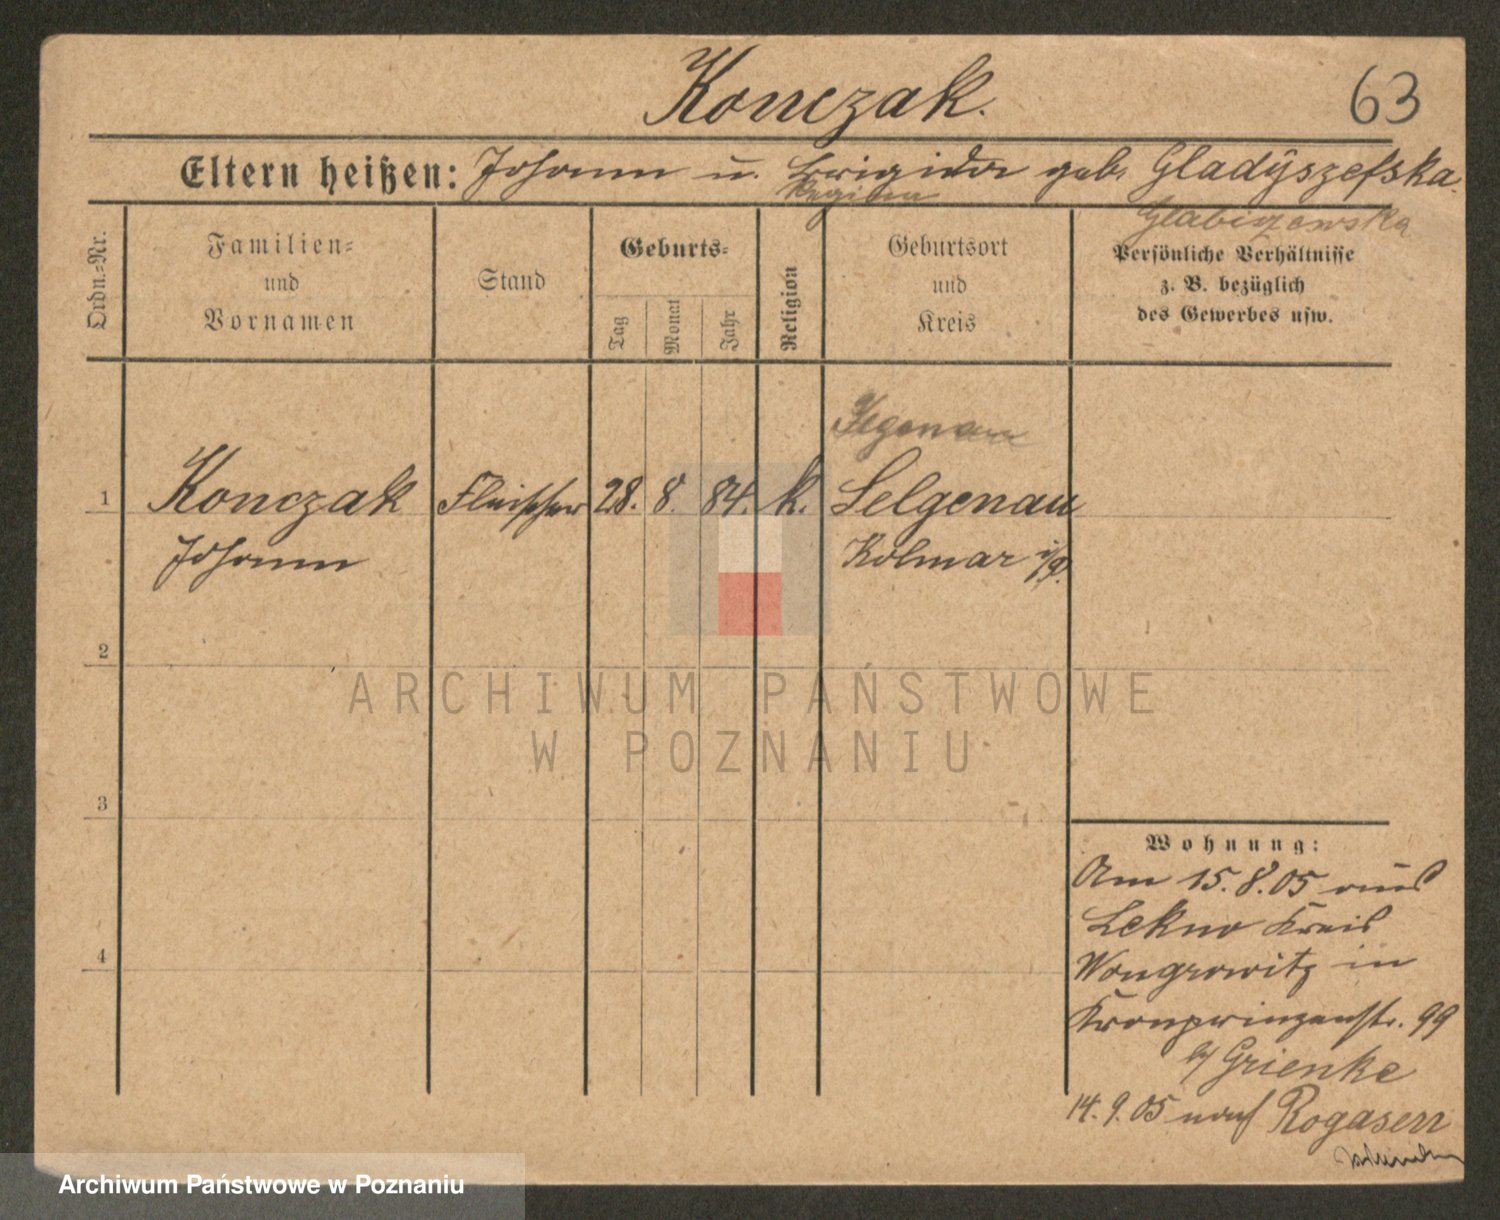 Konczak.
63
Eltern heißen: Johann u. Brigida geb. Gladÿszefska.
Regina
Glabiszewska
Ordn.=Nr.
Familien=
und
Vornamen
Stand
Geburts=
Tag
Monat
Jahr
Religion
Geburtsort
und
Kreis
Persönliche Verhältnisse
z. B. bezüglich
des Gewerbes usw.
1
Konczak
Johann
Fleischer
28. 8. 84.
k.
Selgenau
Kolmar i/P.
2
3
4
Wohnung:
Am 15.8.05 aus
Lekno Kreis
Wongrowitz in
Kronprinzenstr. 99
b/ Grienke
14.9.05 nach Rogasen
ARCHIWUM PAŃSTWOWE
W POZNANIU
Archiwum Państwowe w Poznaniu